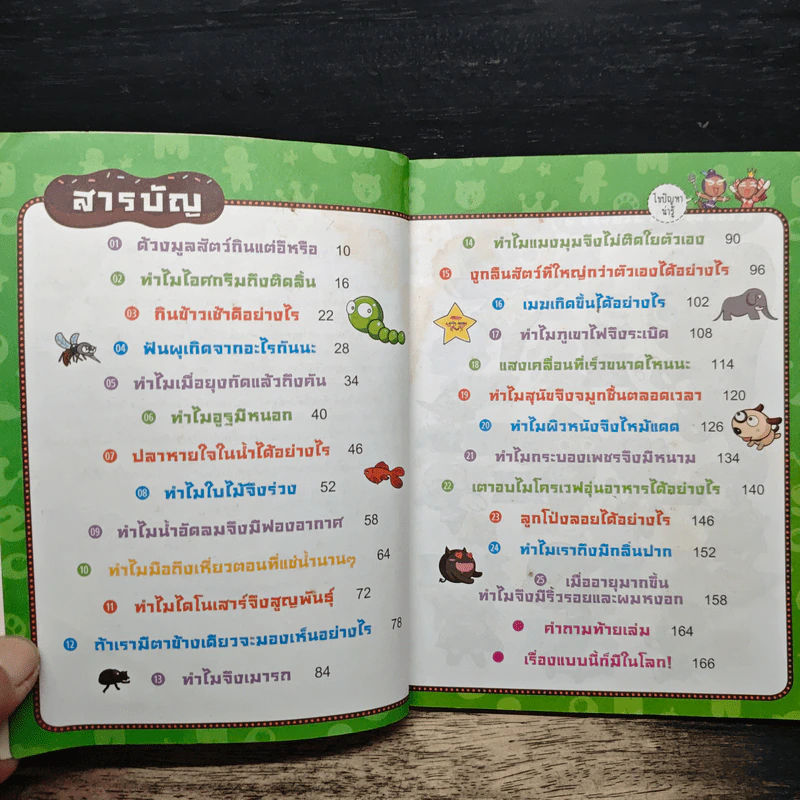 สารบัญ
01 ด้วงมูลสัตว์กินแต่อึหรือ 10
02 ทำไมไอศกรีมถึงติดลิ้น 16
03 กินข้าวเช้าดีอย่างไร 22
04 ฟันผุเกิดจากอะไรกันนะ 28
05 ทำไมเมื่อยุงกัดแล้วถึงคัน 34
06 ทำไมอูฐมีหนอก 40
07 ปลาหายใจในน้ำได้อย่างไร 46
08 ทำไมใบไม้จึงร่วง 52
09 ทำไมน้ำอัดลมจึงมีฟองอากาศ 58
10 ทำไมมือถึงเหี่ยวตอนที่แช่น้ำนานๆ 64
11 ทำไมไดโนเสาร์จึงสูญพันธุ์ 72
12 ถ้าเรามีตาข้างเดียวจะมองเห็นอย่างไร 78
13 ทำไมจึงเมารถ 84
ไขปัญหา
น่ารู้
14 ทำไมแมงมุมจึงไม่ติดใยตัวเอง 90
15 งูกลืนสัตว์ที่ใหญ่กว่าตัวเองได้อย่างไร 96
16 เมฆเกิดขึ้นได้อย่างไร 102
17 ทำไมภูเขาไฟจึงระเบิด 108
18 แสงเคลื่อนที่เร็วขนาดไหนนะ 114
19 ทำไมสุนัขจึงจมูกชื้นตลอดเวลา 120
20 ทำไมผิวหนังจึงไหม้แดด 126
21 ทำไมกระบองเพชรจึงมีหนาม 134
22 เตาอบไมโครเวฟอุ่นอาหารได้อย่างไร 140
23 ลูกโป่งลอยได้อย่างไร 146
24 ทำไมเราถึงมีกลิ่นปาก 152
25 เมื่ออายุมากขึ้น
ทำไมจึงมีริ้วรอยและผมหงอก 158
คำถามท้ายเล่ม 164
เรื่องแบบนี้ก็มีในโลก! 166